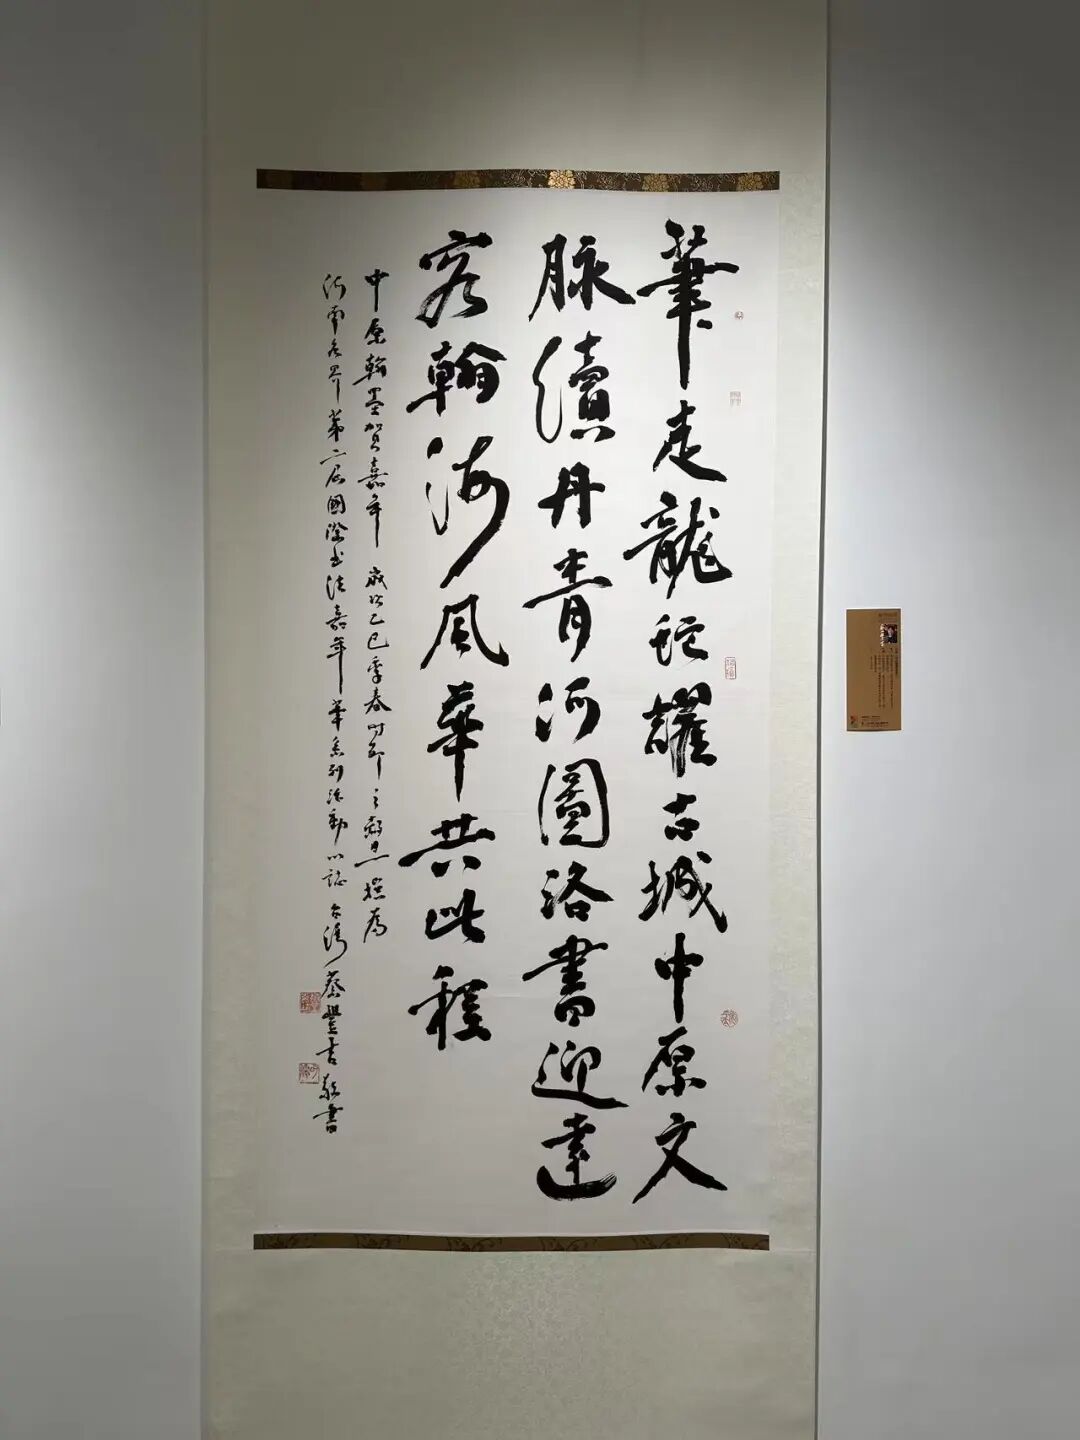 筆走龍蛇耀古城中原文
脉續丹青河圖洛書迎達
客翰海風華共此程
中原翰墨賀嘉年 歲次乙巳季春時節之際 爲
河南各界第二屆國際书法嘉年華系列活動以誌 台灣蔡豐吉敬書